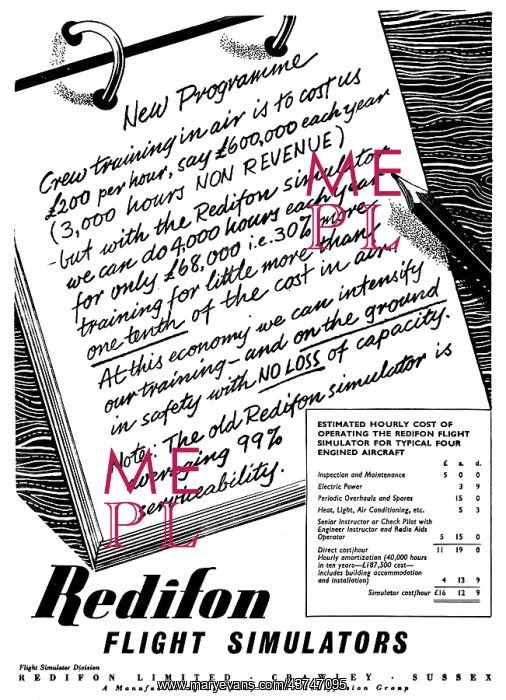 New Programme
Crew training in air is to cost us
£200 per hour, say £600,000 each year
(3,000 hours NON REVENUE)
-but with the Redifon simulator
we can do 4,000 hours each year
for only £68,000 i.e. 30% more
training for little more than
one tenth of the cost in air
At this economy we can intensify
our training - and on the ground
in safety with NO LOSS of capacity.
Note: The old Redifon simulator is
averaging 99%
serviceability.
ME
PL
ME
PL
ESTIMATED HOURLY COST OF
OPERATING THE REDIFON FLIGHT
SIMULATOR FOR TYPICAL FOUR
ENGINED AIRCRAFT
£ s. d.
Inspection and Maintenance 5 0 0
Electric Power 3 9
Periodic Overhauls and Spares 15 0
Heat, Light, Air Conditioning, etc. 5 3
Senior Instructor or Check Pilot with
Engineer Instructor and Radio Aids
Operator 5 15 0
Direct cost/hour 11 19 0
Hourly amortization (40,000 hours
in ten years—£187,500 cost—
includes building accommodation
and installation) 4 13 9
Simulator cost/hour £16 12 9
Redifon
FLIGHT SIMULATORS
Flight Simulator Division
REDIFON LIMITED · CRAWLEY · SUSSEX
A Manufa
sion Group
www.maryevans.com/43747095